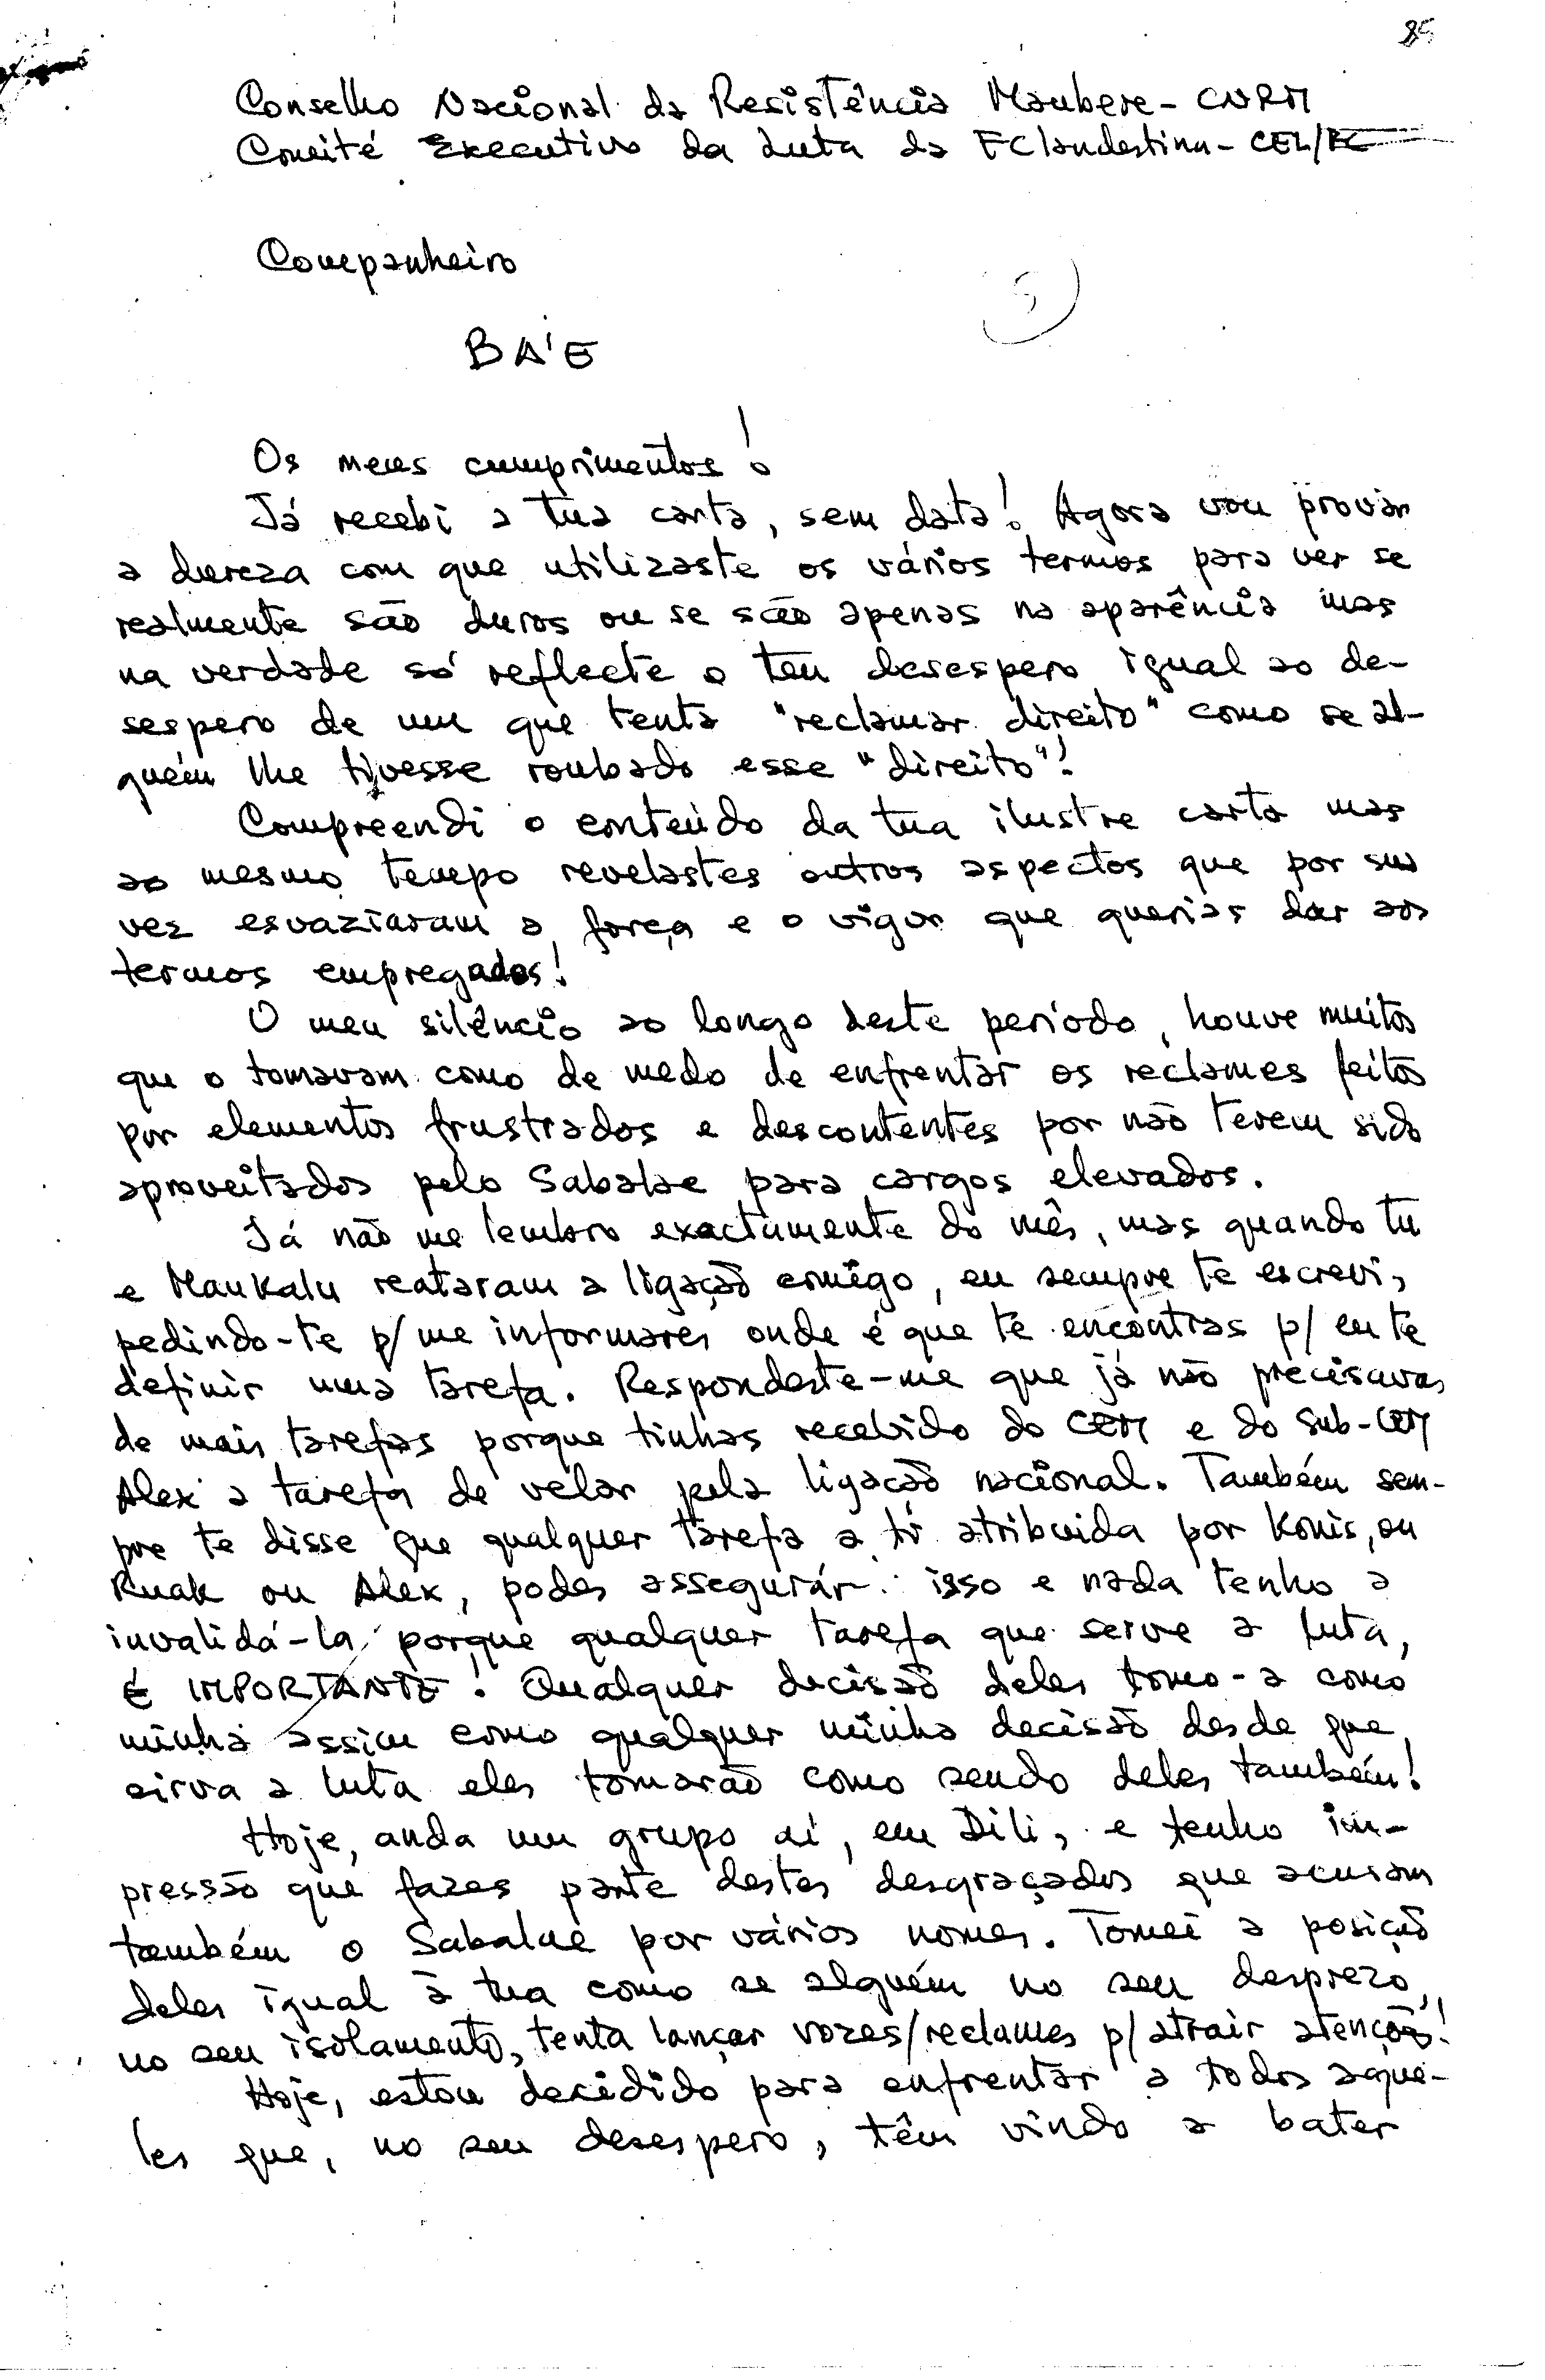 85
Conselho Nacional da Resistência Maubere - CNRM
Comité Executivo da Luta da FClandestina - CEL/FC
Companheiro
5
BA'E
Os meus cumprimentos!
Já recebi a tua carta, sem data! Agora vou provar
a dureza com que utilizaste os vários termos para ver se
realmente são duros ou se são apenas na aparência mas
na verdade só reflecte o teu desespero igual ao de-
sespero de um que tenta "reclamar direito" como se al-
guém lhe tivesse roubado esse "direito"!
Compreendi o conteúdo da tua ilustre carta mas
ao mesmo tempo revelastes outros aspectos que por sua
vez esvaziaram a força e o vigor que querias dar aos
termos empregados!
O meu silêncio ao longo deste período, houve muitos
que o tomavam como de medo de enfrentar os reclames feitos
por elementos frustrados e descontentes por não terem sido
aproveitados pelo Sabalae para cargos elevados.
Já não me lembro exactamente do mês, mas quando tu
e Maukalu reataram a ligação comigo, eu sempre te escrevi,
pedindo-te p/ me informares onde é que te encontras p/ eu te
definir uma tarefa. Respondeste-me que já não precisavas
de mais tarefas porque tinhas recebido do CEM e do Sub-CEM
Alex a tarefa de velar pela ligação nacional. Também sem-
pre te disse que qualquer tarefa a ti atribuida por Konis, ou
Ruak ou Alex, podes assegurar isso e nada tenho a
invalidá-la, porque qualquer tarefa que serve a luta,
É IMPORTANTE! Qualquer decisão deles tomo-a como
minha assim como qualquer minha decisão desde que
sirva a luta eles tomarão como sendo deles também!
Hoje, anda um grupo aí, em Dili, e tenho im-
pressão que fazes parte destes desgraçados que acusam
também o Sabalae por vários nomes. Tomei a posição
deles igual à tua como se alguém no seu desprezo,
no seu isolamento, tenta lançar vozes/reclames p/ atrair atenções!
Hoje, estou decidido para enfrentar a todos aque-
les que, no seu desespero, têm vindo a bater